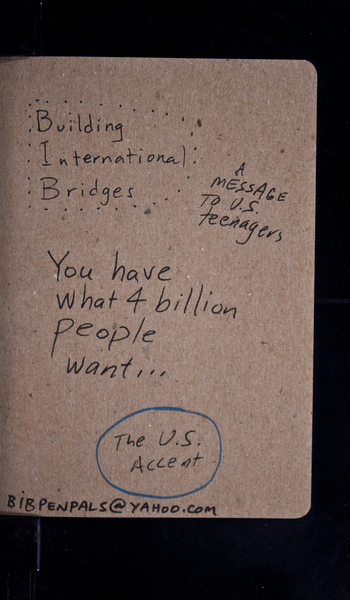 Building
International
Bridges
A
MESSAGE
TO U.S.
teenagers
You have
what 4 billion
people
want...
The U.S.
Accent
BIBPENPALS@YAHOO.COM